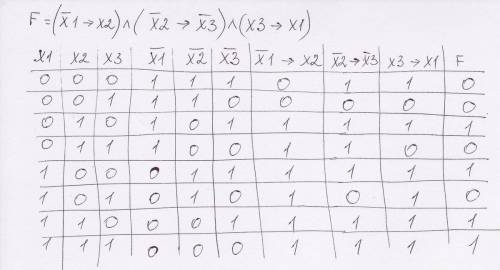 F=(x̄1→x2)∧(x̄2→x̄3)∧(x3→x1)
x1 x2 x3 x̄1 x̄2 x̄3 x̄1→x2 x̄2→x̄3 x3→x1 F
0 0 0 1 1 1 0 1 1 0
0 0 1 1 1 0 0 0 0 0
0 1 0 1 0 1 1 1 1 1
0 1 1 1 0 0 1 1 0 0
1 0 0 0 1 1 1 1 1 1
1 0 1 0 1 0 1 0 1 0
1 1 0 0 0 1 1 1 1 1
1 1 1 0 0 0 1 1 1 1